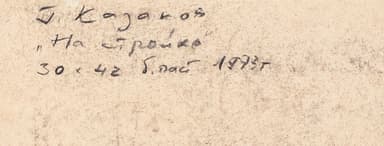 Казаков
"На стройке"
30 × 42 б. паст 1973г